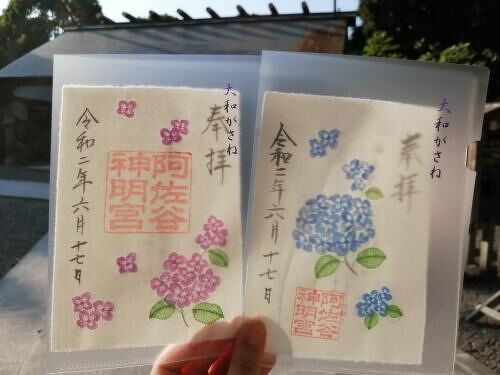 大和がさね
奉拝
阿佐谷
神明宮
令和二年六月十七日
大和がさね
奉拝
阿佐谷
神明宮
令和二年六月十七日